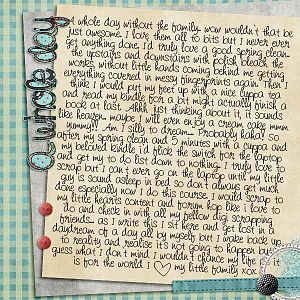 A whole day
A whole day without the family, wow wouldn't that be
just awesome. I love them all to bits but I never ever
get anything done. I'd truly love a good spring clean-
the upstairs and downstairs with polish bleach the
works, without little hands coming behind me getting
everything covered in messy fingerprints again. Then I
think I would put my feet up with a nice cuppa tea
and read my kindle, for a bit might actually finish a
book at last. Ahhh just thinking about it, it sounds
like heaven. maybe I will even enjoy a cream cake mmm
yummy!! Am I silly to dream... Probably haha! So
after my spring clean and 5 minutes with a cuppa and
my beloved kindle I'd flick the switch for the laptop
and get my to do list down to nothing. I truly love to
scrap but I can't ever go on the laptop until my little
guy is sound asleep in bed so don't always get much
done especially now I do this course. I would scrap to
my little hearts content and forum hop like I love to
do and check in with all my fellow digi scrapping
friends. as I write this I sit here and get lost in a
daydream of a day all by myself but I wake back up
to reality and realise it's not going to happen but
guess what I don't mind I wouldn't chance my life as it
is for the world I my little family xox